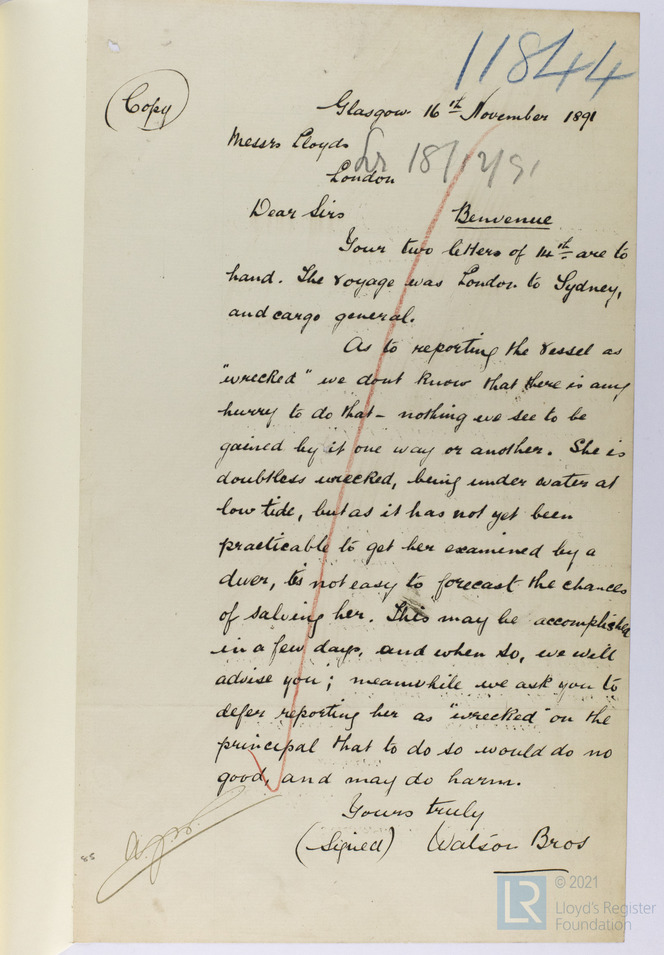 11844
(Copy)
Glasgow 16th November 1891
Messrs Lloyds
London
Lr 18/12/91
Dear Sirs
Benvenue
Your two letters of 14th are to
hand. The voyage was London to Sydney,
and cargo general.
As to reporting the vessel as
"wrecked" we dont know that there is any
hurry to do that – nothing we see to be
gained by it one way or another. She is
doubtless wrecked, being under water at
low tide, but as it has not yet been
practicable to get her examined by a
diver, tis not easy to forecast the chances
of salving her. This may be accomplished
in a few days, and when so, we will
advise you; meanwhile we ask you to
defer reporting her as "wrecked" on the
principal that to do so would do no
good, and may do harm.
Yours truly
(Signed) Watson Bros
© 2021
LR
Lloyd's Register
Foundation